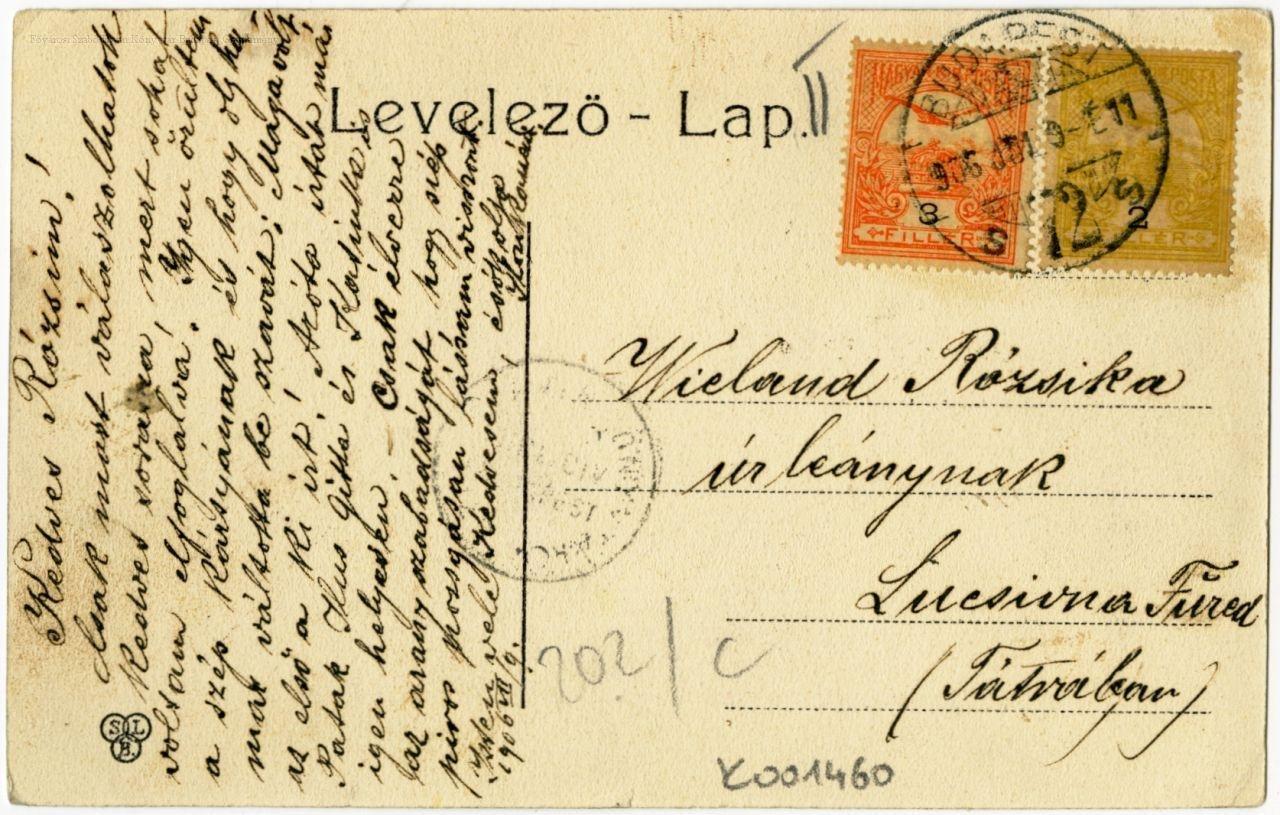 Fővárosi Szabó Ervin Könyvtár Budapest Gyűjtemény
Levelező - Lap.
II
MAGYAR KIR. POSTA
3
FILLÉR
2
FILLÉR
BUDAPEST
906 JUL 9
72
S
Kedves Rózsim!
Csak most válaszolhatok
kedves soraira mert sokat
voltam elfoglalva! Igen örültem
a szép kártyának és hogy oly ha-
mar váltotta be szavát; Maga volt
az első a ki írt! Azóta írtak már
Patak Ilus Gitta és Katinka is
igen helyesen. Csak élvezze
az arany szabadságát hogy szép
piros pozsgásan lássam viszont
Isten vele Kedvesem, csókolja
1906 VII/9.
Wieland Rózsika
úrleánynak
Lucsivna Füred
(Tátrában)
202/C
K001460
S L
B.